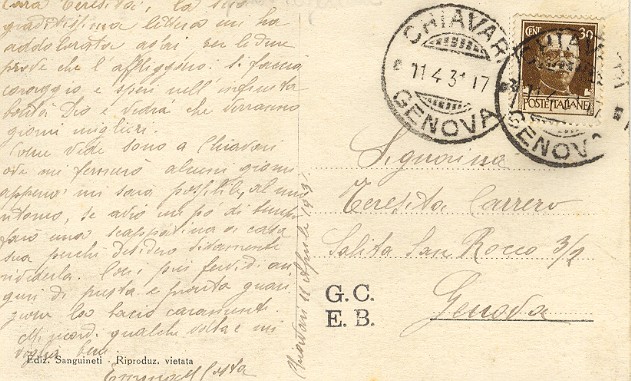 Cara Teresita, la sua
graditissima lettera mi ha
addolorata assai per le dure
prove che l'affliggono: si faccia
coraggio e speri nell'infinita
bontà Dio e vedrà che verranno
giorni migliori.
Come vede sono a Chiavari
ove mi fermerò alcuni giorni
appena mi sarà possibile, al mio
ritorno, se avrò un po' di tempo
farò una scappatina a casa
sua perchè desidero vivamente
rivederla. Coi più fervidi au-
guri di presta e pronta guari-
gione la bacio caramente.
Mi ricordi qualche volta e mi
voglia bene.
Costa
Chiavari 11 Aprile 1931
Ediz. Sanguineti - Riproduz. vietata
CHIAVARI
11.4.31 17
GENOVA
CHIAVARI
11.4
GENOVA
CENT. 30
POSTE ITALIANE
Signorina
Teresita Carrero
Salita San Rocco 3/2
Genova
G. C.
E. B.